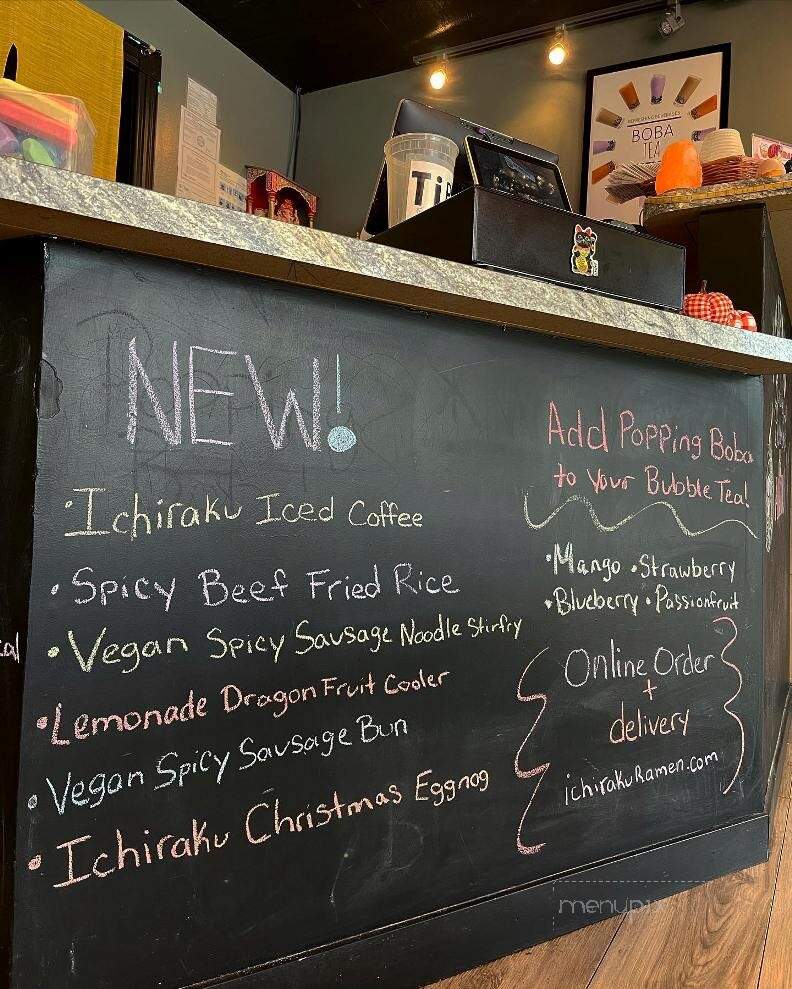 REFRESHING BEVERAGES
BOBA
TEA
Tip
NEW!
• Ichiraku Iced Coffee
• Spicy Beef Fried Rice
• Vegan Spicy Sausage Noodle Stirfry
• Lemonade DragonFruit Cooler
• Vegan Spicy Sausage Bun
• Ichiraku Christmas Eggnog
Add Popping Boba
to Your Bubble Tea!
• Mango • Strawberry
• Blueberry • Passionfruit
Online Order
+
delivery
ichirakuRamen.com
menupix